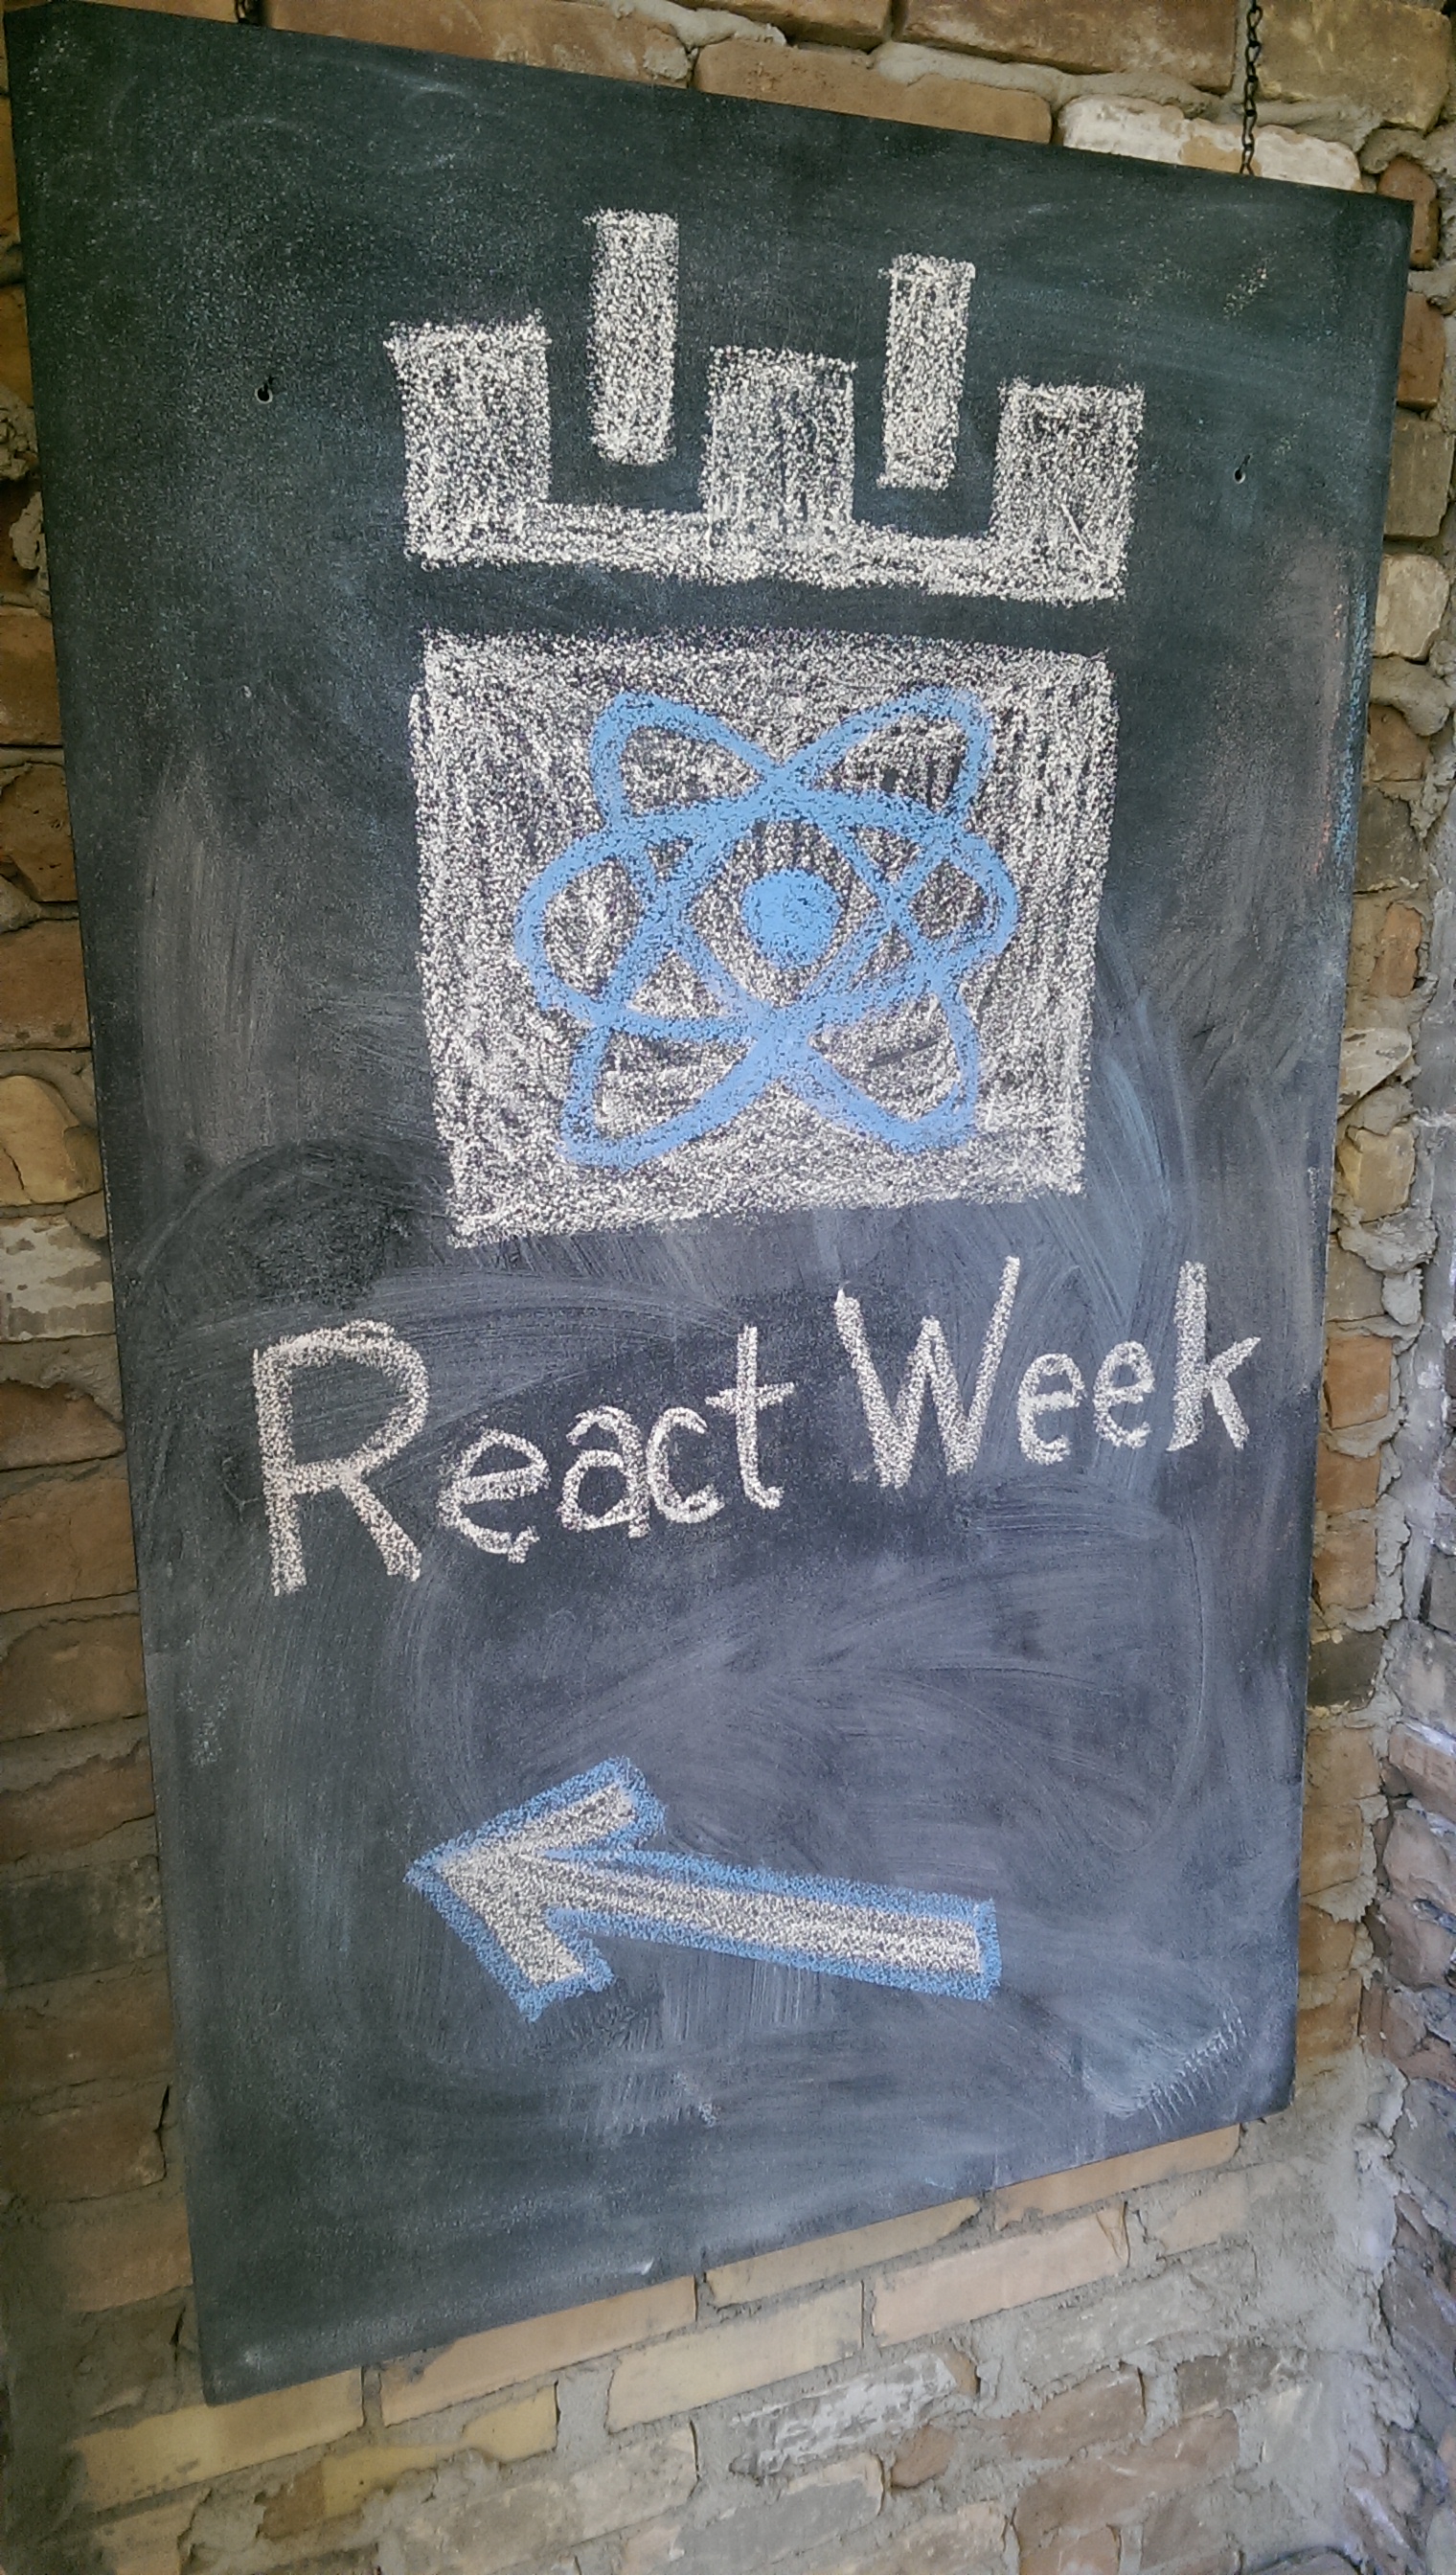 React Week